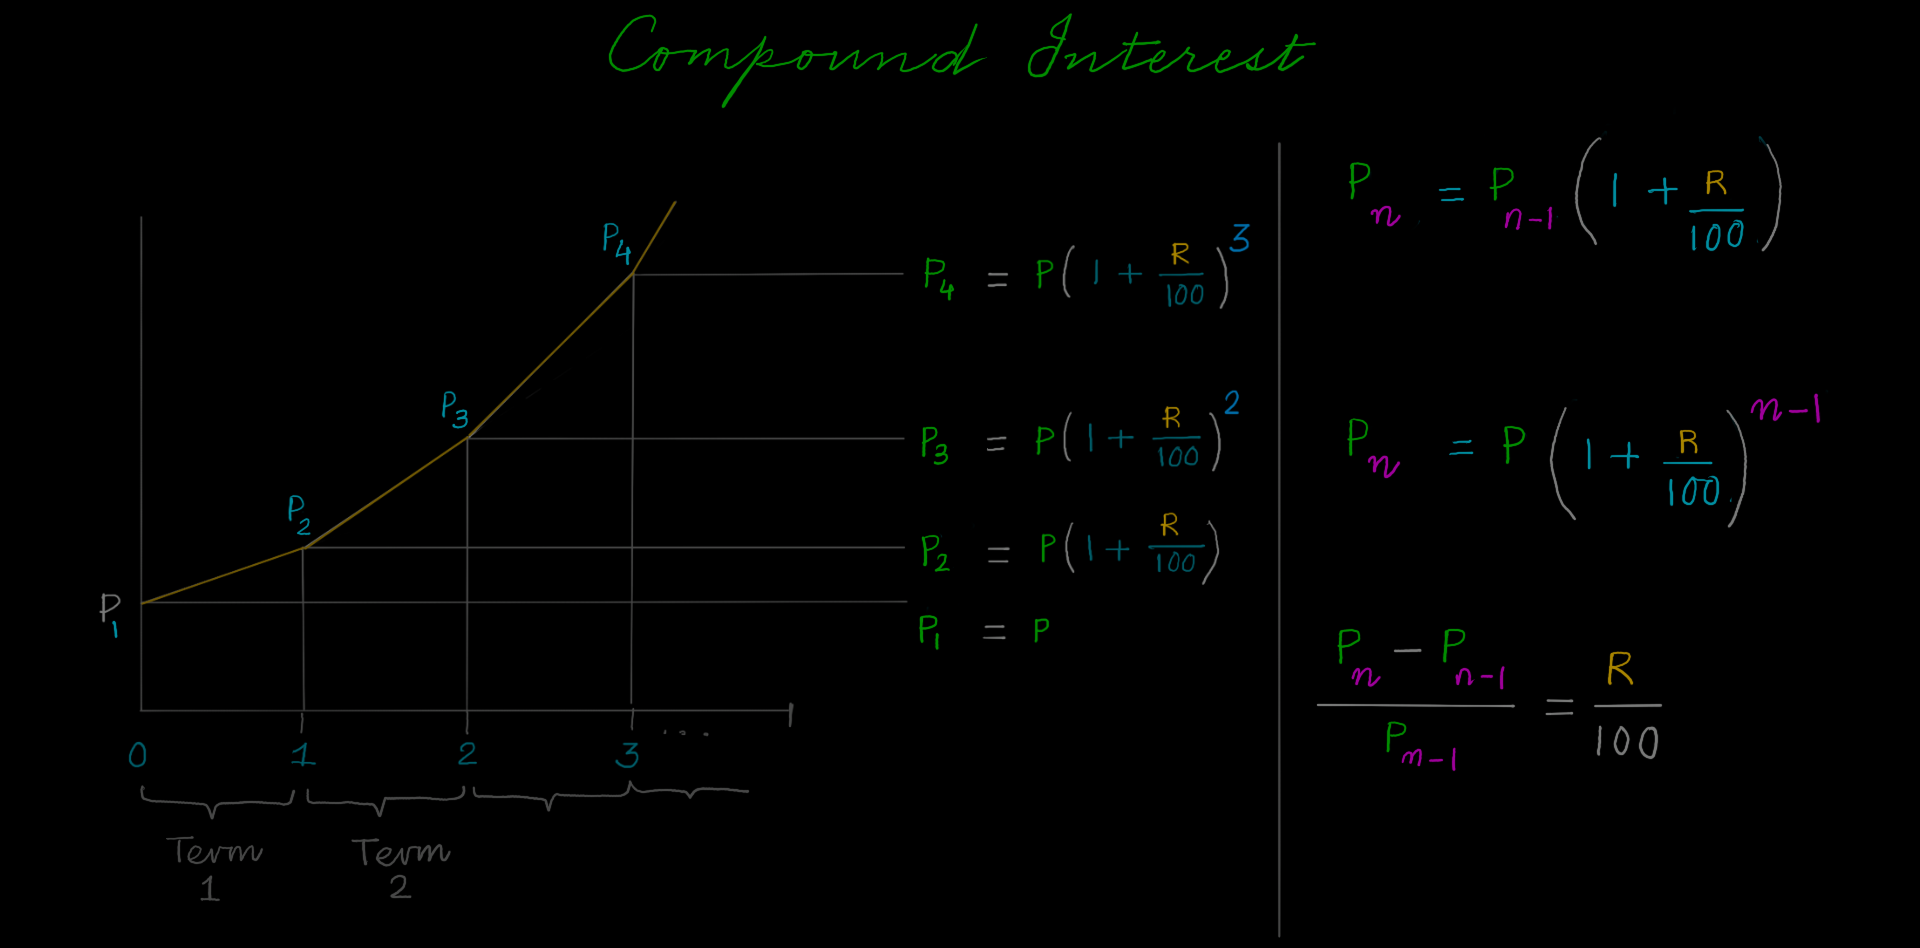 Compound Interest
P₄
P₃
P₂
P₁
0 1 2 3 ....
Term 1
Term 2
P₄ = P(1 + R/100)³
P₃ = P(1 + R/100)²
P₂ = P(1 + R/100)
P₁ = P
Pₙ = Pₙ₋₁(1 + R/100)
Pₙ = P(1 + R/100)ⁿ⁻¹
(Pₙ − Pₙ₋₁)/Pₙ₋₁ = R/100